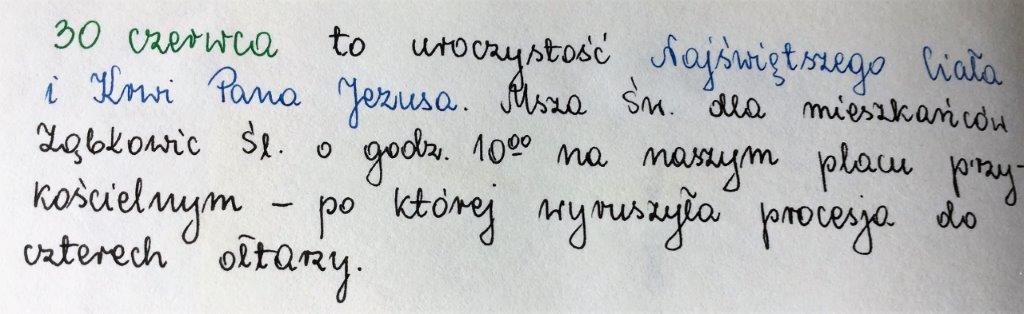 30 czerwca to uroczystość Najświętszego Ciała
i Krwi Pana Jezusa. Msza Św. dla mieszkańców
Ząbkowic Śl. o godz. 10⁰⁰ na naszym placu przy-
kościelnym - po której wyruszyła procesja do
czterech ołtarzy.